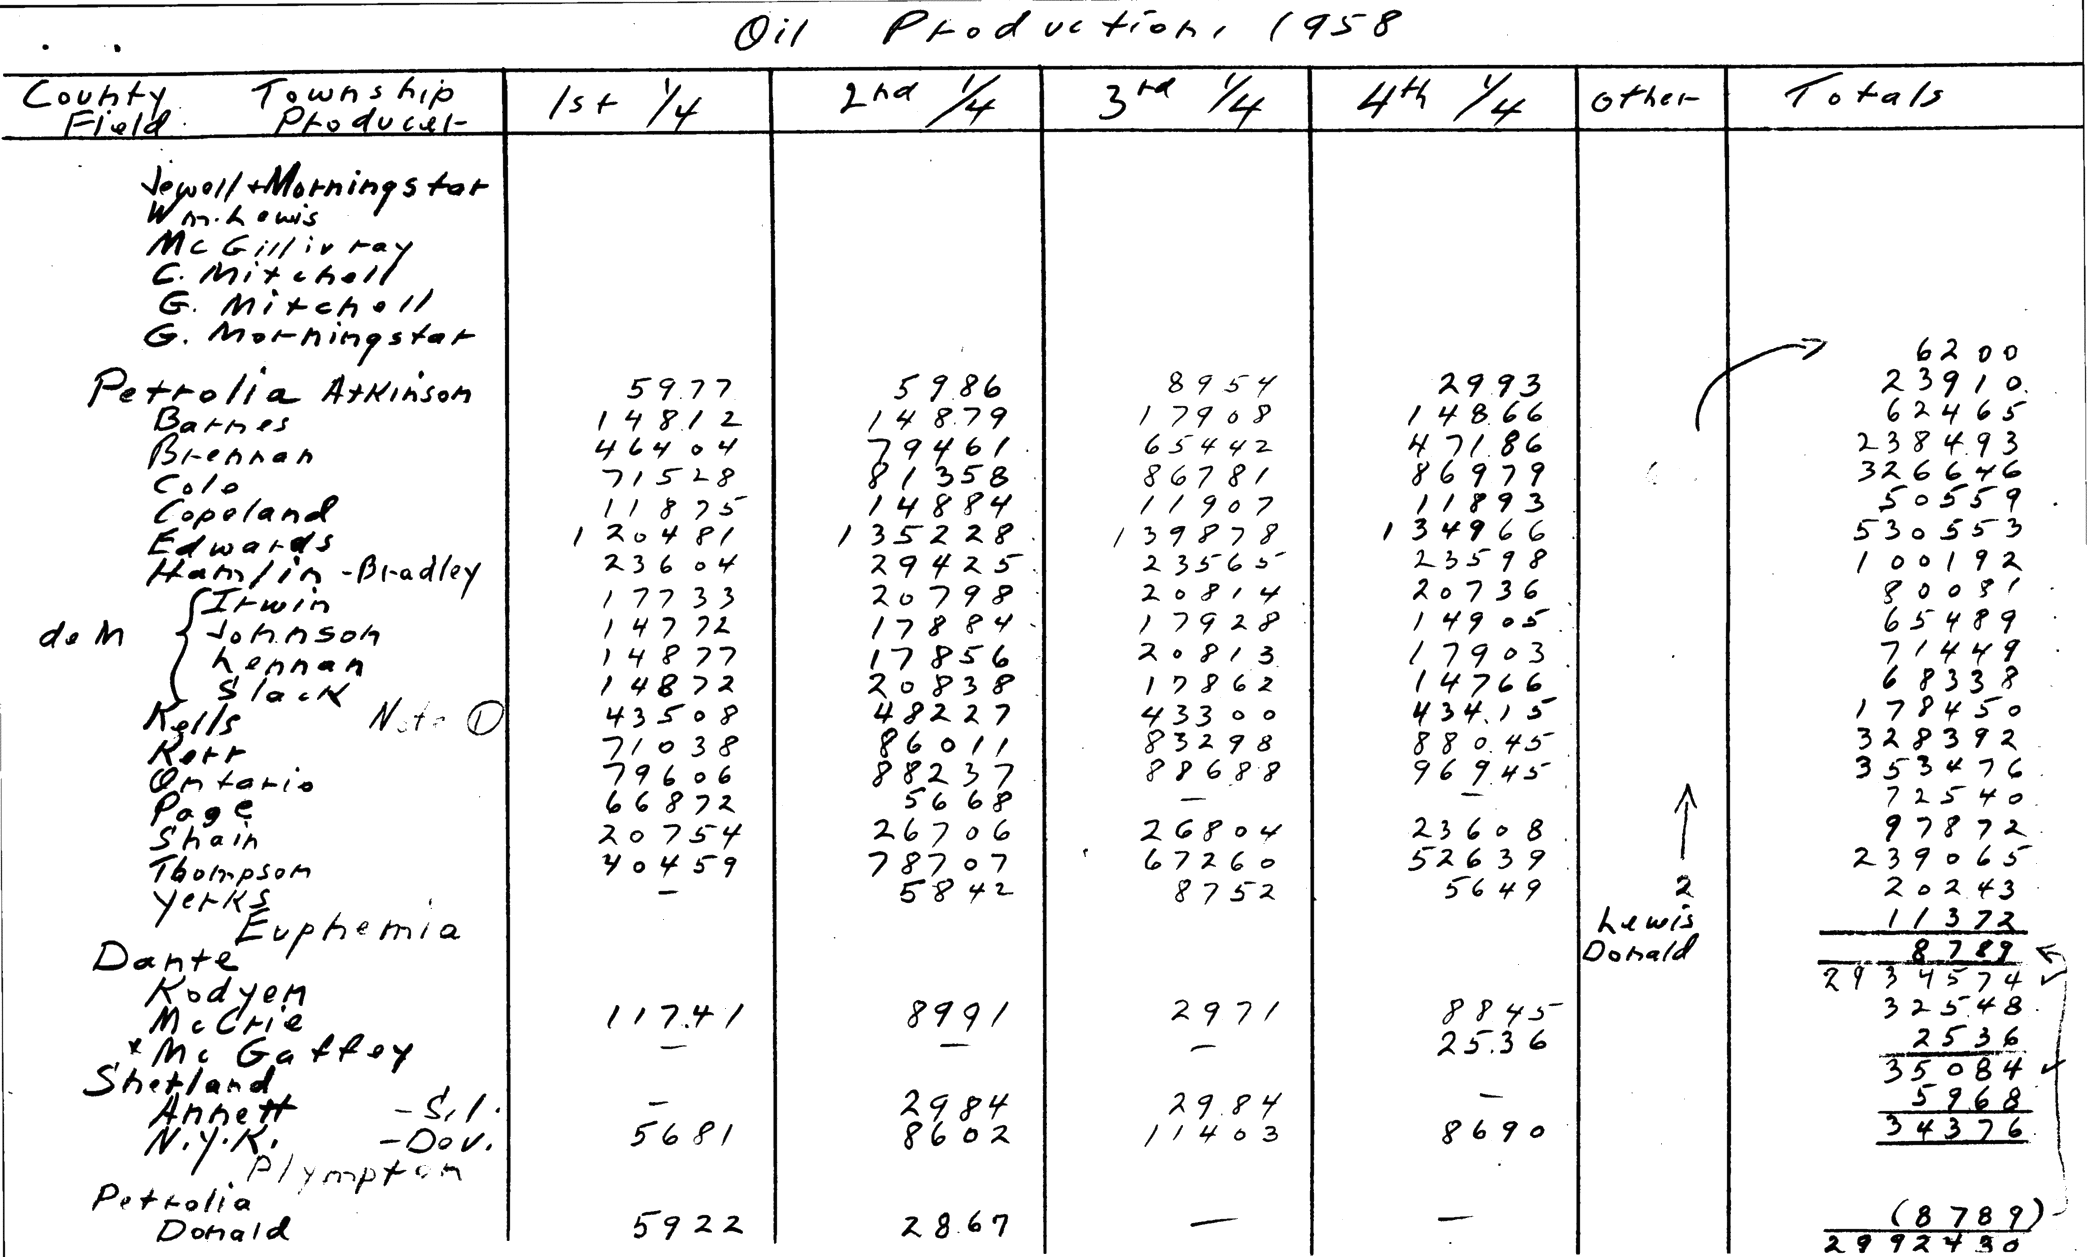 Oil Production, 1958
County Township 1st 1/4 2nd 1/4 3rd 1/4 4th 1/4 Other Totals
Field Producer
Jewell + Morningstar
Wm. Lewis
McGillivray
C. Mitchell
G. Mitchell
G. Morningstar
6200
Petrolia Atkinson 5977 5986 8954 2993 23910
Barnes 14812 14879 17908 14866 62465
Brennan 46404 79461 65442 47186 238493
Cole 71528 81358 86781 86979 326646
Copeland 11875 14884 11907 11893 50559
Edwards 120481 135228 139878 134966 530553
Hamlin - Bradley 23604 29425 23565 23598 100192
Irwin 17733 20798 20814 20736 80081
deM Johnson 14772 17884 17928 14905 65489
Lennan 14877 17856 20813 17903 71449
Slack 14872 20838 17862 14766 68338
Kells Note 1 43508 48227 43300 43415 178450
Kerr 71038 86011 83298 88045 328392
Ontario 79606 88237 88688 96945 353476
Page 66872 5668 — — 72540
Shain 20754 26706 26804 23608 97872
Thompson 40459 78707 67260 52639 239065
Yerks — 5842 8752 5649 2 20243
Euphemia Lewis 11372
Dante Donald 8789
Kodyen 2934574
McCrie 11741 8991 2971 8845 32548
* McGaffey — — — 2536 2536
Shetland 35084
Annett - Sil. — 2984 2984 — 5968
N.Y.K. - Dov. 5681 8602 11403 8690 34376
Plympton
Petrolia
Donald 5922 2867 — — (8789)
2992430